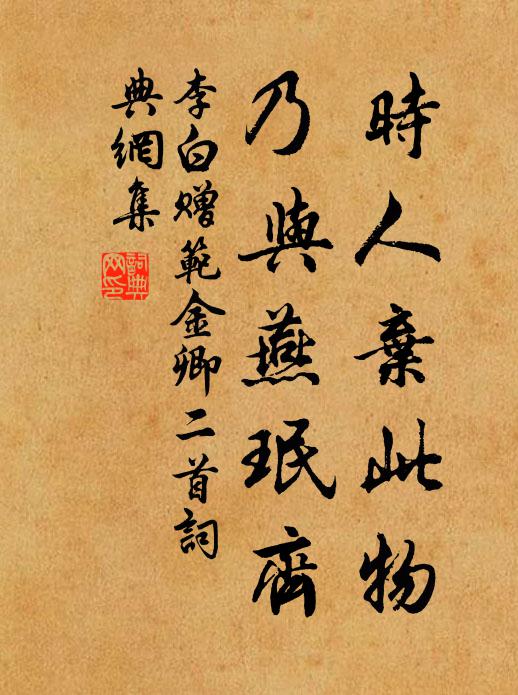 時人棄此物
乃與燕珉齊
李白贈範金卿二首詞
典網集
詞典
网印